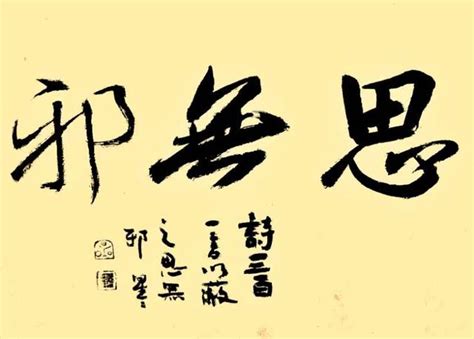 思無邪
詩三百
一言以蔽
之思無
邪